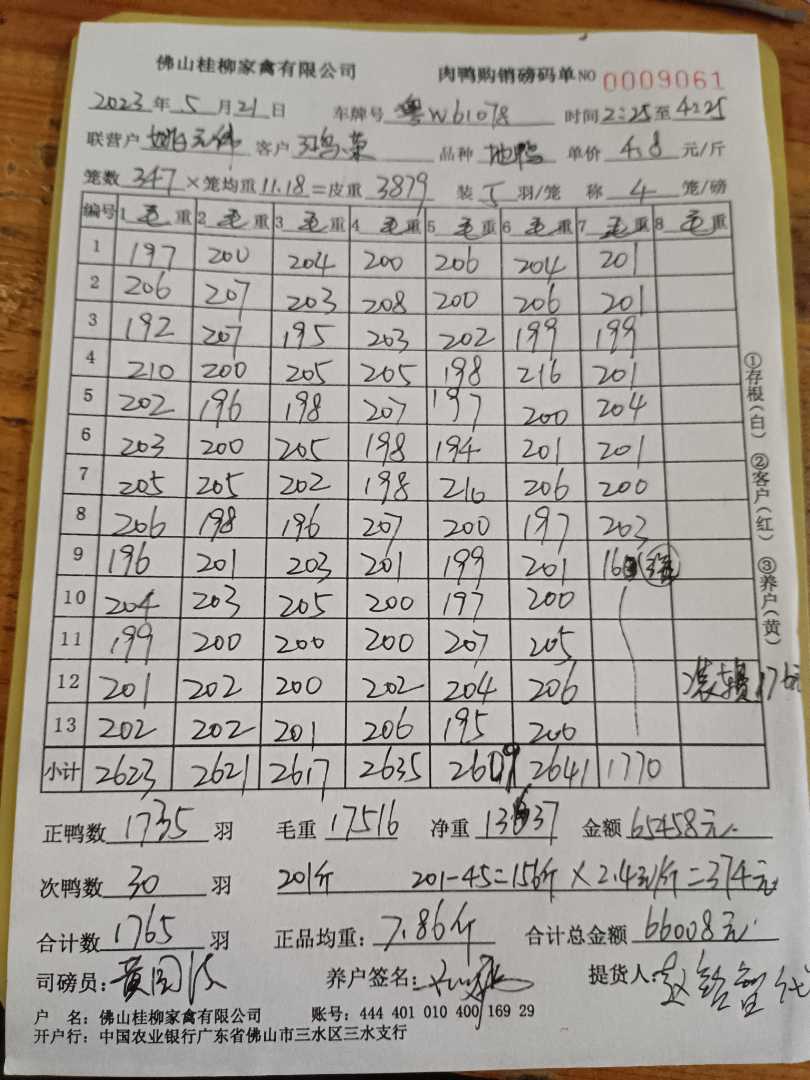 佛山桂柳家禽有限公司 肉鸭购销磅码单 NO 0009061
2023年5月21日 车牌号 粤W61078 时间2:25至4:25
联营户 客户 品种 地鸭 单价 4.8 元/斤
笼数 347 ×笼均重11.18=皮重 3879 装 5 羽/笼 称 4 笼/磅
编号 1 毛重 2 毛重 3 毛重 4 毛重 5 毛重 6 毛重 7 毛重 8 毛重
1 197 200 204 200 206 204 201
2 206 207 203 208 200 206 201
3 192 207 195 203 202 199 199
4 210 200 205 205 198 216 201
5 202 196 198 207 197 200 204
6 203 200 205 198 194 201 201
7 205 205 202 198 210 206 200
8 206 198 196 207 200 197 203
9 196 201 203 201 199 201
10 204 203 205 200 197 200
11 199 200 200 200 207 205
12 201 202 200 202 204 206
13 202 202 201 206 195 200
小计 2623 2621 2617 2635 2609 2641 1770
装车费176元
①存根(白) ②客户(红) ③养户(黄)
正鸭数 1735 羽 毛重 17516 净重 13637 金额 65458元
次鸭数 30 羽 201斤 201-45=156斤×2.4元/斤=374元
合计数 1765 羽 正品均重: 7.86斤 合计总金额 66008元
司磅员: 养户签名: 提货人:
户 名: 佛山桂柳家禽有限公司 账号: 444 401 010 400 169 29
开户行: 中国农业银行广东省佛山市三水区三水支行